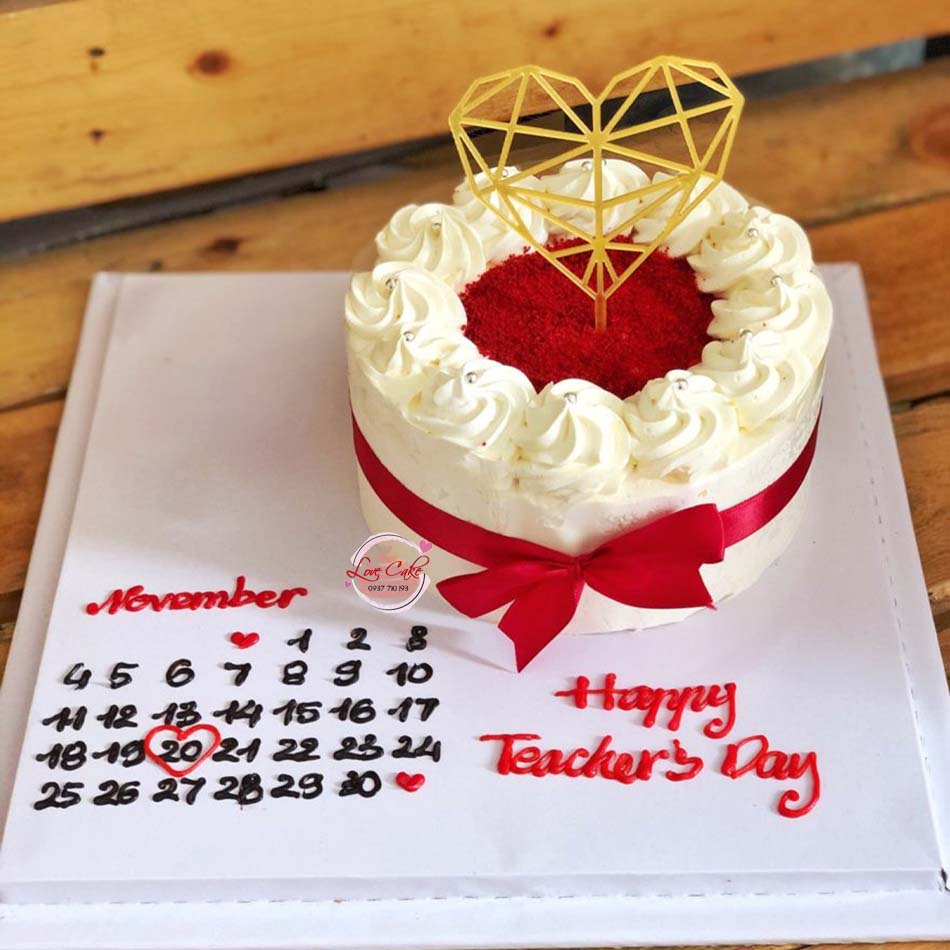 Love Cake
0937 710 193
November
1 2 3
4 5 6 7 8 9 10
11 12 13 14 15 16 17
18 19 20 21 22 23 24
25 26 27 28 29 30
Happy
Teacher's Day